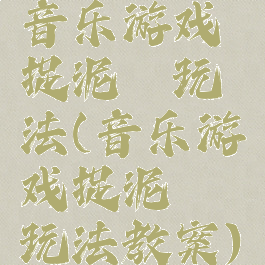 音乐游戏
捉泥 玩
法(音乐游
戏捉泥
玩法教案)